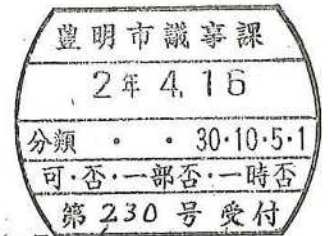 豊明市議事課
2年 4.16
分類 ・ ・ 30・10・5・1
可・否・一部否・一時否
第 230 号 受付